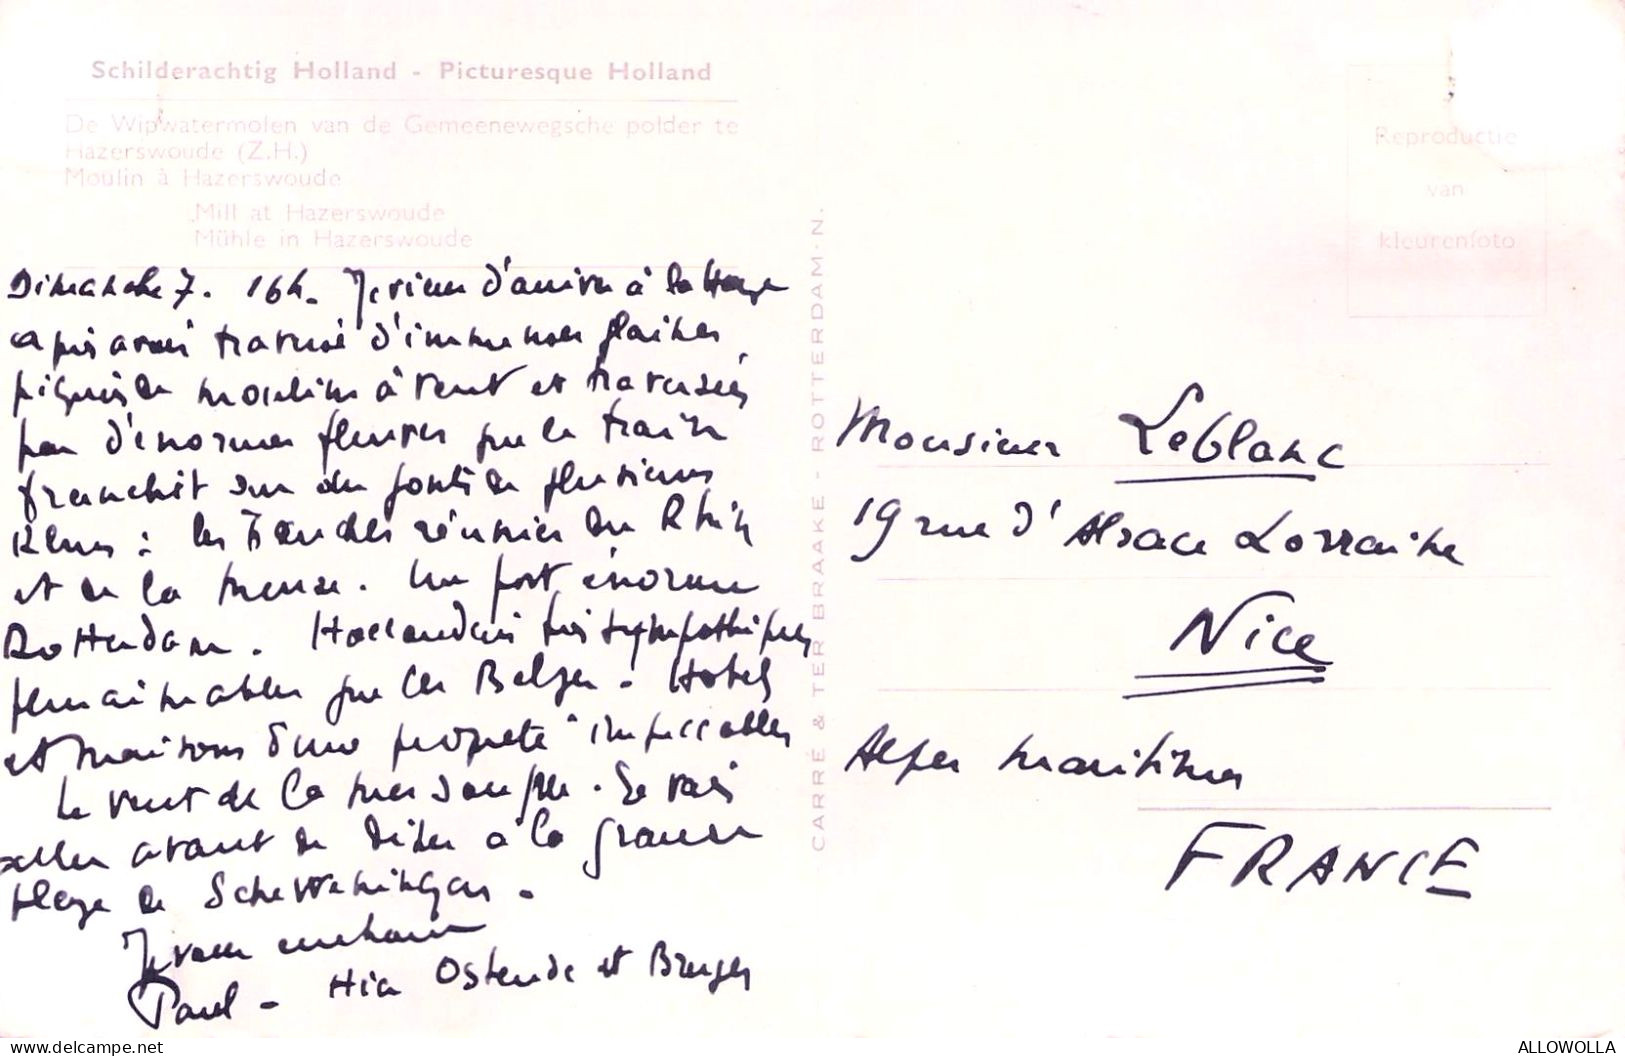 Schilderachtig Holland - Picturesque Holland
De Wipwatermolen van de Gemeenewegsche polder te
Hazerswoude (Z.H.)
Moulin à Hazerswoude
Mill at Hazerswoude
Mühle in Hazerswoude
Reproductie
van
kleurenfoto
CARRÉ & TER BRAAKE - ROTTERDAM-N.
Dimanche 7. 16h. Je viens d'arriver à la Haye
après avoir traversé d'immenses plaines
piquées de moulins à vent et traversées
par d'énormes fleuves que le train
franchit sur des ponts de plusieurs
Klms : les branches réunies du Rhin
et de la Meuse. Un port énorme
Rotterdam. Hollandais très sympathiques
plus aimables que les Belges. Hotels
et maisons d'une propreté impeccables
Le vent de la mer souffle. Je vais
aller avant de dîner à la grande
plage de Scheveningen.
Je vous embrasse
Paul - Hier Ostende et Bruges
Monsieur Leblanc
19 rue d'Alsace Lorraine
Nice
Alpes maritimes
FRANCE
ALLOWOLLA